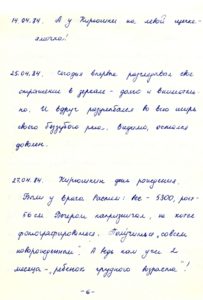 14.04.84. А у Кирюшки на левой щеке -
ямочка!
25.04.84. Сегодня впервые разглядывал свое
отражение в зеркале - долго и внимательно.
И вдруг разулыбался во всю ширь
своего беззубого рта. Видимо, остался
доволен.
27.04.84. Кирюшкин день рождения.
Были у врача Расти: вес - 5300, рост -
60 см. Вечером капризничал, но потом
фотографировались. Получились, совсем
"новорожденные". А ведь нам уже 2
месяца - "ребенок грудного возраста"!
- 6 -